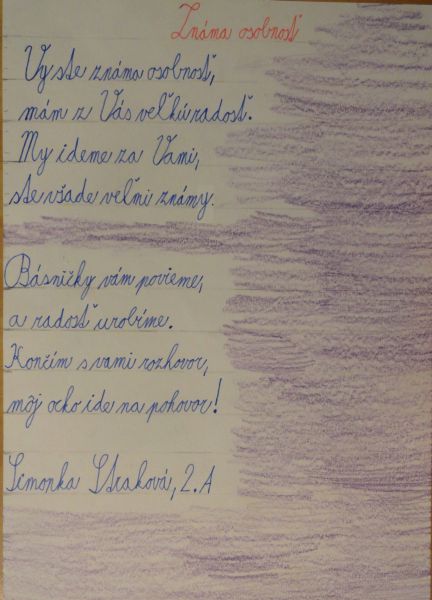 Známa osobnosť
Vy ste známa osobnosť,
mám z Vás veľkú radosť.
My ideme za Vami,
ste všade veľmi známy.
Básničky vám povieme,
a radosť urobíme.
Končím s vami rozhovor,
môj ocko ide na pohovor!
Simonka Straková, 2.A